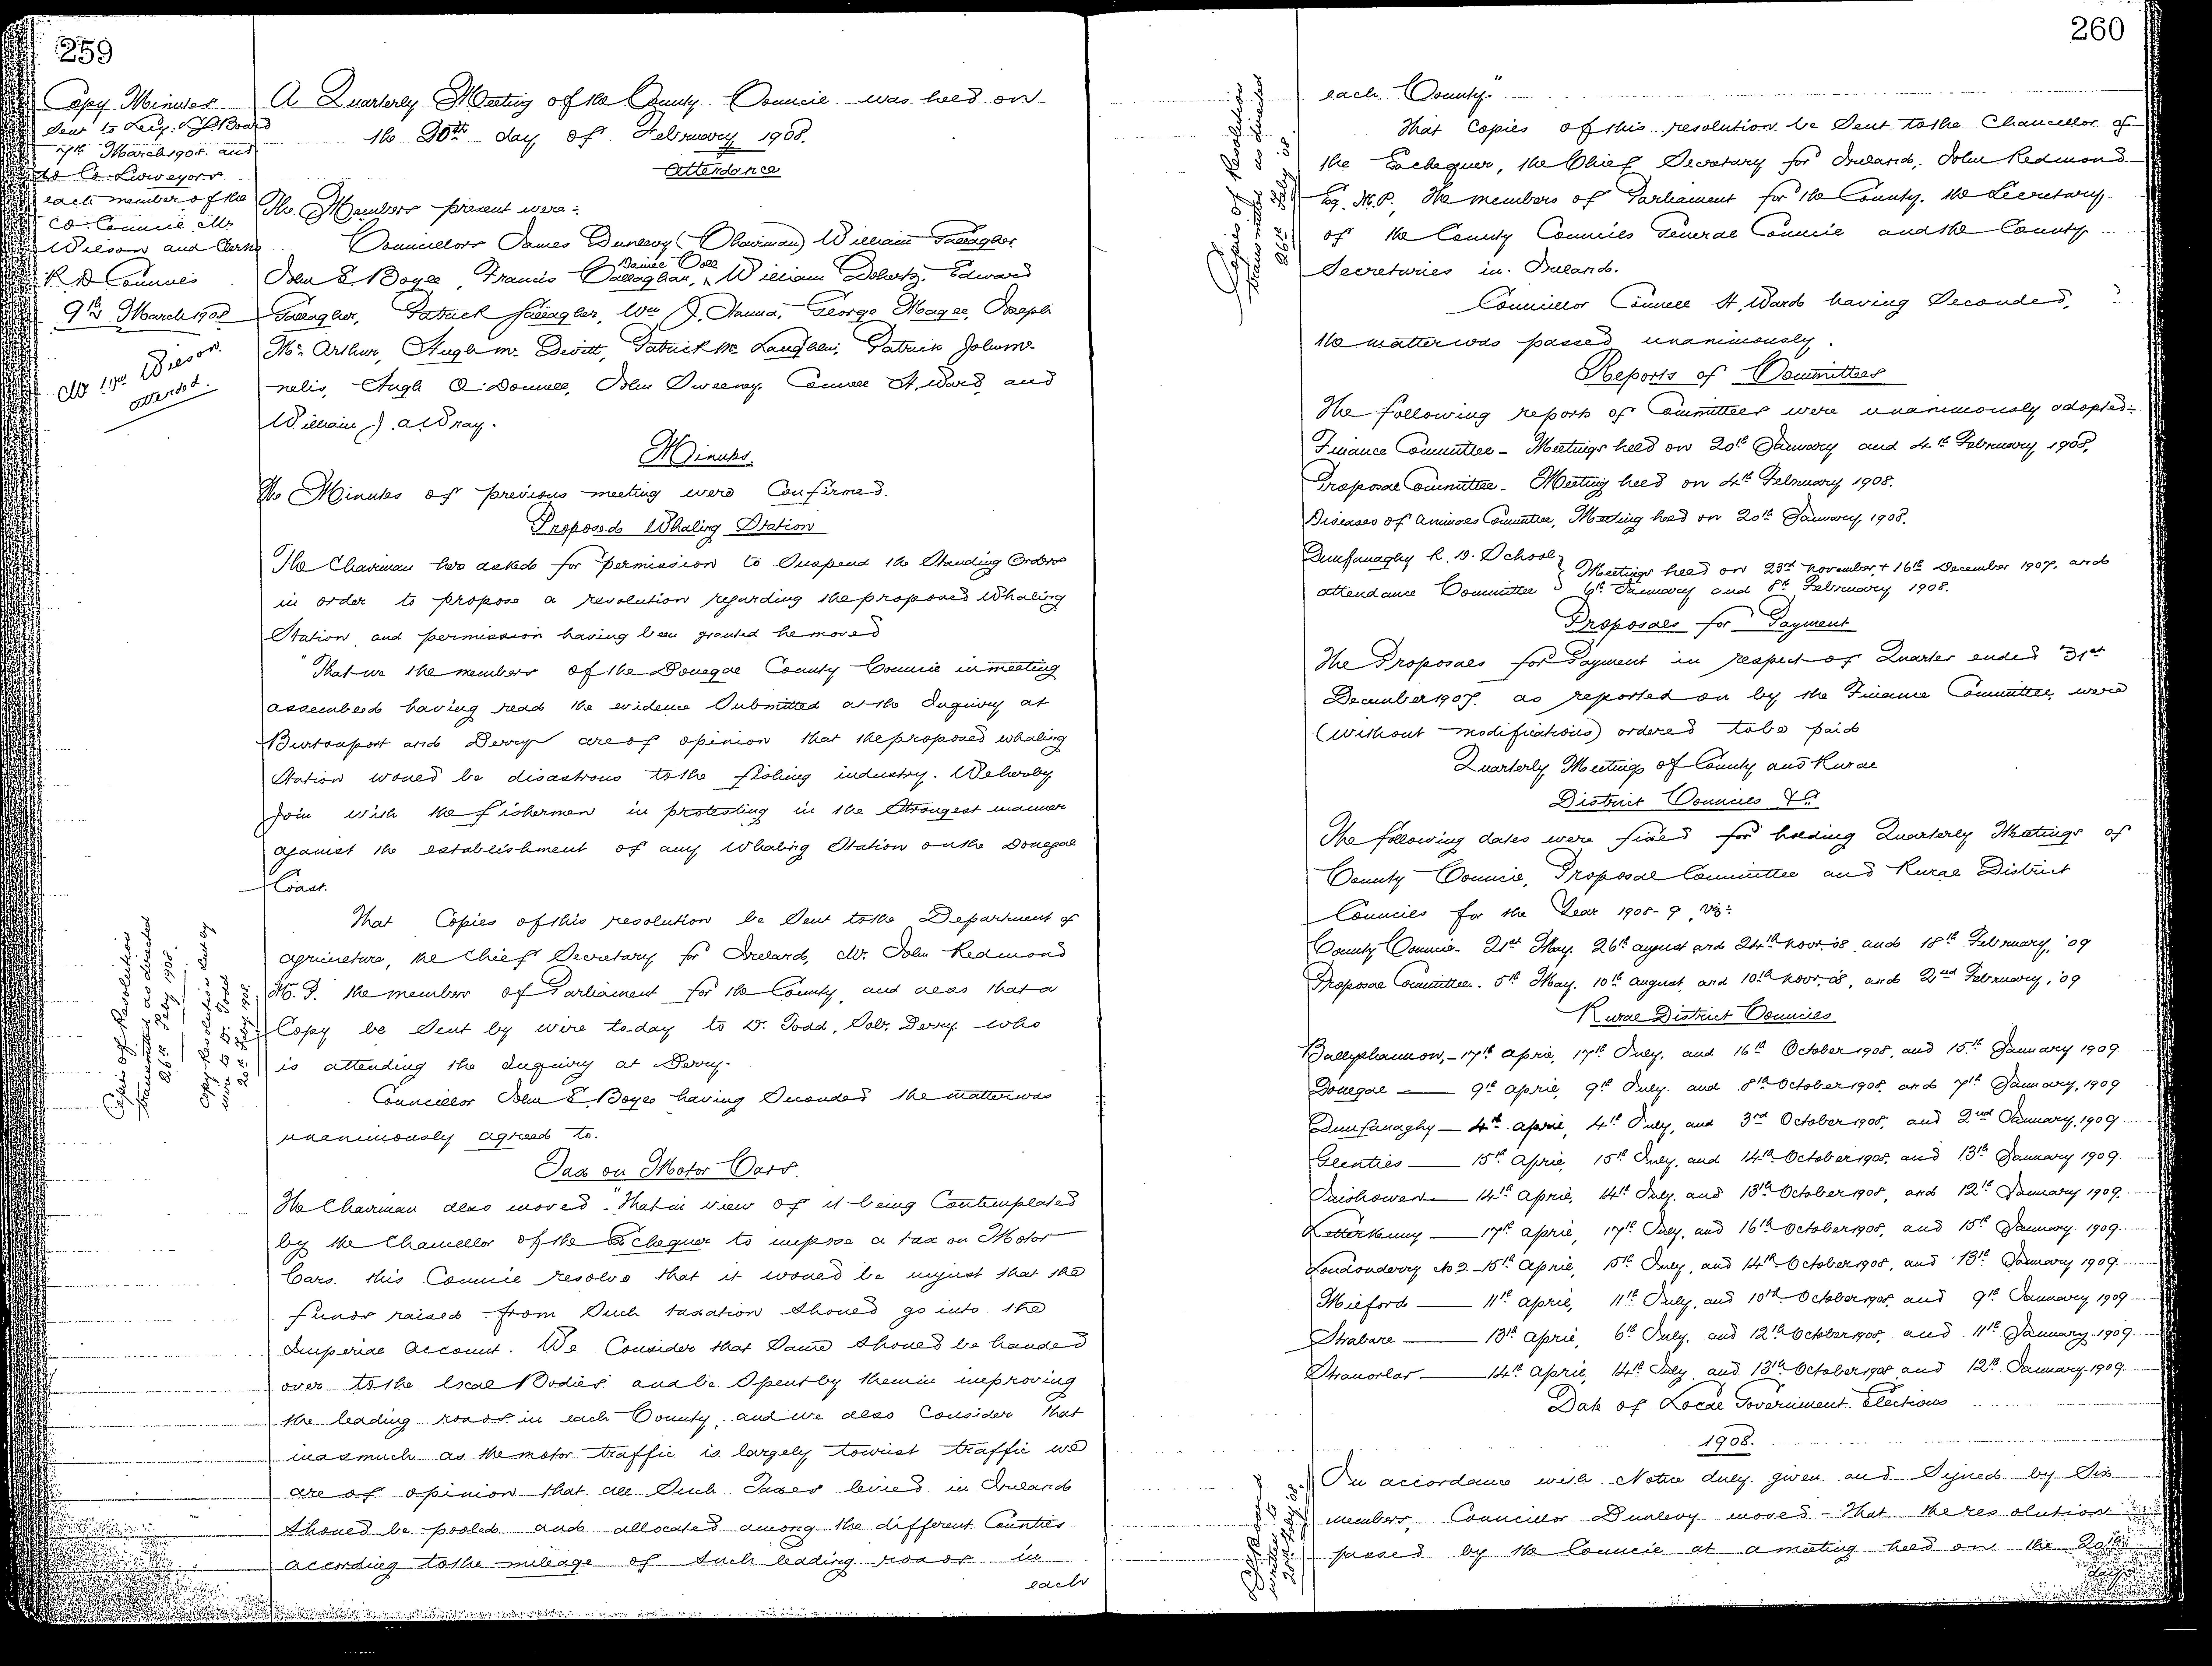 259
Copy Minutes
Sent to Secy. L.G. Board
7th March 1908. and
to Co. Surveyors
each member of the
Co. Council Mr.
Wilson and Clerks
R. D Councils
9th March 1908
Mr Wm Wilson.
attended.
A Quarterly Meeting of the County Council was held on
the 20th day of February 1908.
Attendance
The Members present were:-
Councillors James Dunlevy (Chairman) William Gallagher,
John E. Boyle, Francis O'Callaghan, Daniel Coll William Doherty, Edward
Gallagher, Patrick Gallagher, Wm J. Hanna, George Magee, Joseph
Mc. Arthur, Hugh Mc Devitt, Patrick Mc Laughlin, Patrick John Mc-
nelis, Hugh O'Donnell, John Sweeney, Connell H. Ward, and
William J. A. Wray.
Minutes.
The Minutes of previous meeting were Confirmed.
Proposed Whaling Station
The Chairman here asked for permission to Suspend the Standing Orders
in order to propose a resolution regarding the proposed Whaling
Station and permission having been granted he moved
"That we the members of the Donegal County Council in meeting
assembled having read the evidence Submitted at the Inquiry at
Burtonport and Derry are of opinion that the proposed whaling
Station would be disastrous to the fishing industry. We hereby
Join with the fishermen in protesting in the Strongest manner
against the establishment of any Whaling Station on the Donegal
Coast.
That Copies of this resolution be Sent to the Department of
Agriculture, the Chief Secretary for Ireland, Mr. John Redmond
M.P. the members of Parliament for the County, and also that a
Copy be Sent by wire to-day to D. Todd, Solr. Derry who
is attending the Inquiry at Derry.
Copies of Resolution
transmitted as directed
26th Feby 1908.
Copy Resolution sent by
wire to D. Todd
20th Feby 1908.
Councillor John E. Boyle having Seconded the matter was
unanimously agreed to.
Tax on Motor Cars.
The Chairman also moved - "That in view of it being Contemplated
by the Chancellor of the Exchequer to impose a tax on Motor
Cars this Council resolve that it would be unjust that the
funds raised from Such taxation Should go into the
Imperial Account. We Consider that Same Should be handed
over to the local Bodies and be Spent by them in improving
the leading roads in each County, and we also Consider that
inasmuch as the motor traffic is largely tourist traffic we
are of opinion that all Such Taxes levied in Ireland
Should be pooled and allocated among the different Counties
according to the mileage of Such leading roads in
each
260
each County."
That Copies of this resolution be Sent to the Chancellor of
the Exchequer, the Chief Secretary for Ireland, John Redmond
Esq. M.P., The members of Parliament for the County, the Secretary
of the County Councils General Council and the County
Secretaries in Ireland.
Copies of Resolution
transmitted as directed
26th Feby '08.
Councillor Connell H. Ward having Seconded,
the matter was passed unanimously.
Reports of Committees
The following reports of Committees were unanimously adopted:-
Finance Committee - Meetings held on 20th January and 4th February 1908,
Proposal Committee - Meeting held on 4th February 1908.
Diseases of Animals Committee, Meeting held on 20th January 1908.
Dunfanaghy R. D. School
attendance Committee } Meetings held on 23rd November, + 16th December 1907, and
6th January and 8th February 1908.
Proposals for Payment
The Proposals for Payment in respect of Quarter ended 31st
December 1907. as reported on by the Finance Committee, were
(without modifications) ordered to be paid
Quarterly Meetings of County and Rural
District Councils &c.
The following dates were fixed for holding Quarterly Meetings of
County Council, Proposal Committee and Rural District
Councils for the Year 1908-9, viz:-
County Council - 21st May. 26th August and 24th Novr. '08 and 18th February, '09
Proposal Committee. 5th May. 10th August, and 10th Novr. '08, and 2nd February, '09
Rural District Councils
Ballyshannon, - 17th April, 17th July, and 16th October 1908, and 15th January 1909
Donegal - 9th April, 9th July. and 8th October 1908, and 7th January, 1909
Dunfanaghy - 4th April, 4th July, and 3rd October 1908, and 2nd January, 1909
Glenties - 15th April, 15th July, and 14th October 1908, and 13th January 1909
Inishowen - 14th April, 14th July. and 13th October 1908, and 12th January 1909.
Letterkenny - 17th April, 17th July, and 16th October 1908, and 15th January 1909
Londonderry No 2 - 15th April, 15th July, and 14th October 1908, and 13th January 1909
Milford - 11th April, 11th July, and 10th October 1908, and 9th January 1909
Strabane - 13th April, 6th July, and 12th October 1908, and 11th January 1909
Stranorlar - 14th April, 14th July, and 13th October 1908 and 12th January 1909
Date of Local Government Elections
1908.
In accordance with Notice duly given and Signed by Six
members, Councillor Dunlevy moved - That the resolution
passed by the Council at a meeting held on the 20th
days
written to
26th Feby '08.